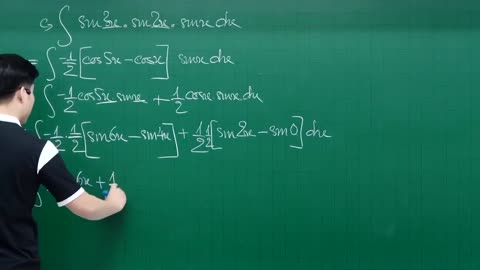 c, ∫ sin3x . sin2x . sinx dx
= ∫ -1/2 [cos5x - cosx] sinx dx
∫ -1/2 cos5x sinx + 1/2 cosx sinx dx
-1/2 . 1/2 [sin6x - sin4x] + 1/2 1/2 [sin2x - sin0] dx
6x + 1